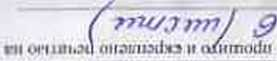 прошито и скреплено печатью на
6 (шести)